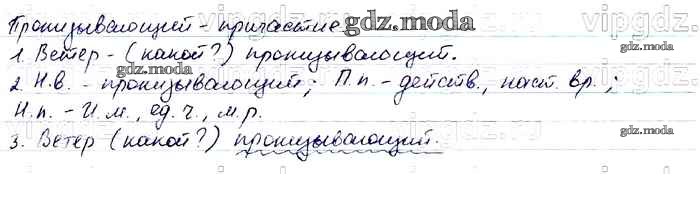 Пронизывающий - причастие
1. Ветер - (какой?) пронизывающий.
2. Н.в. - пронизывающий; П.п. - действ., наст. вр.;
Н.п. - И.п., ед. ч., м.р.
3. Ветер (какой?) пронизывающий.
gdz.moda
gdz.moda
gdz.moda
gdz.moda
vipgdz